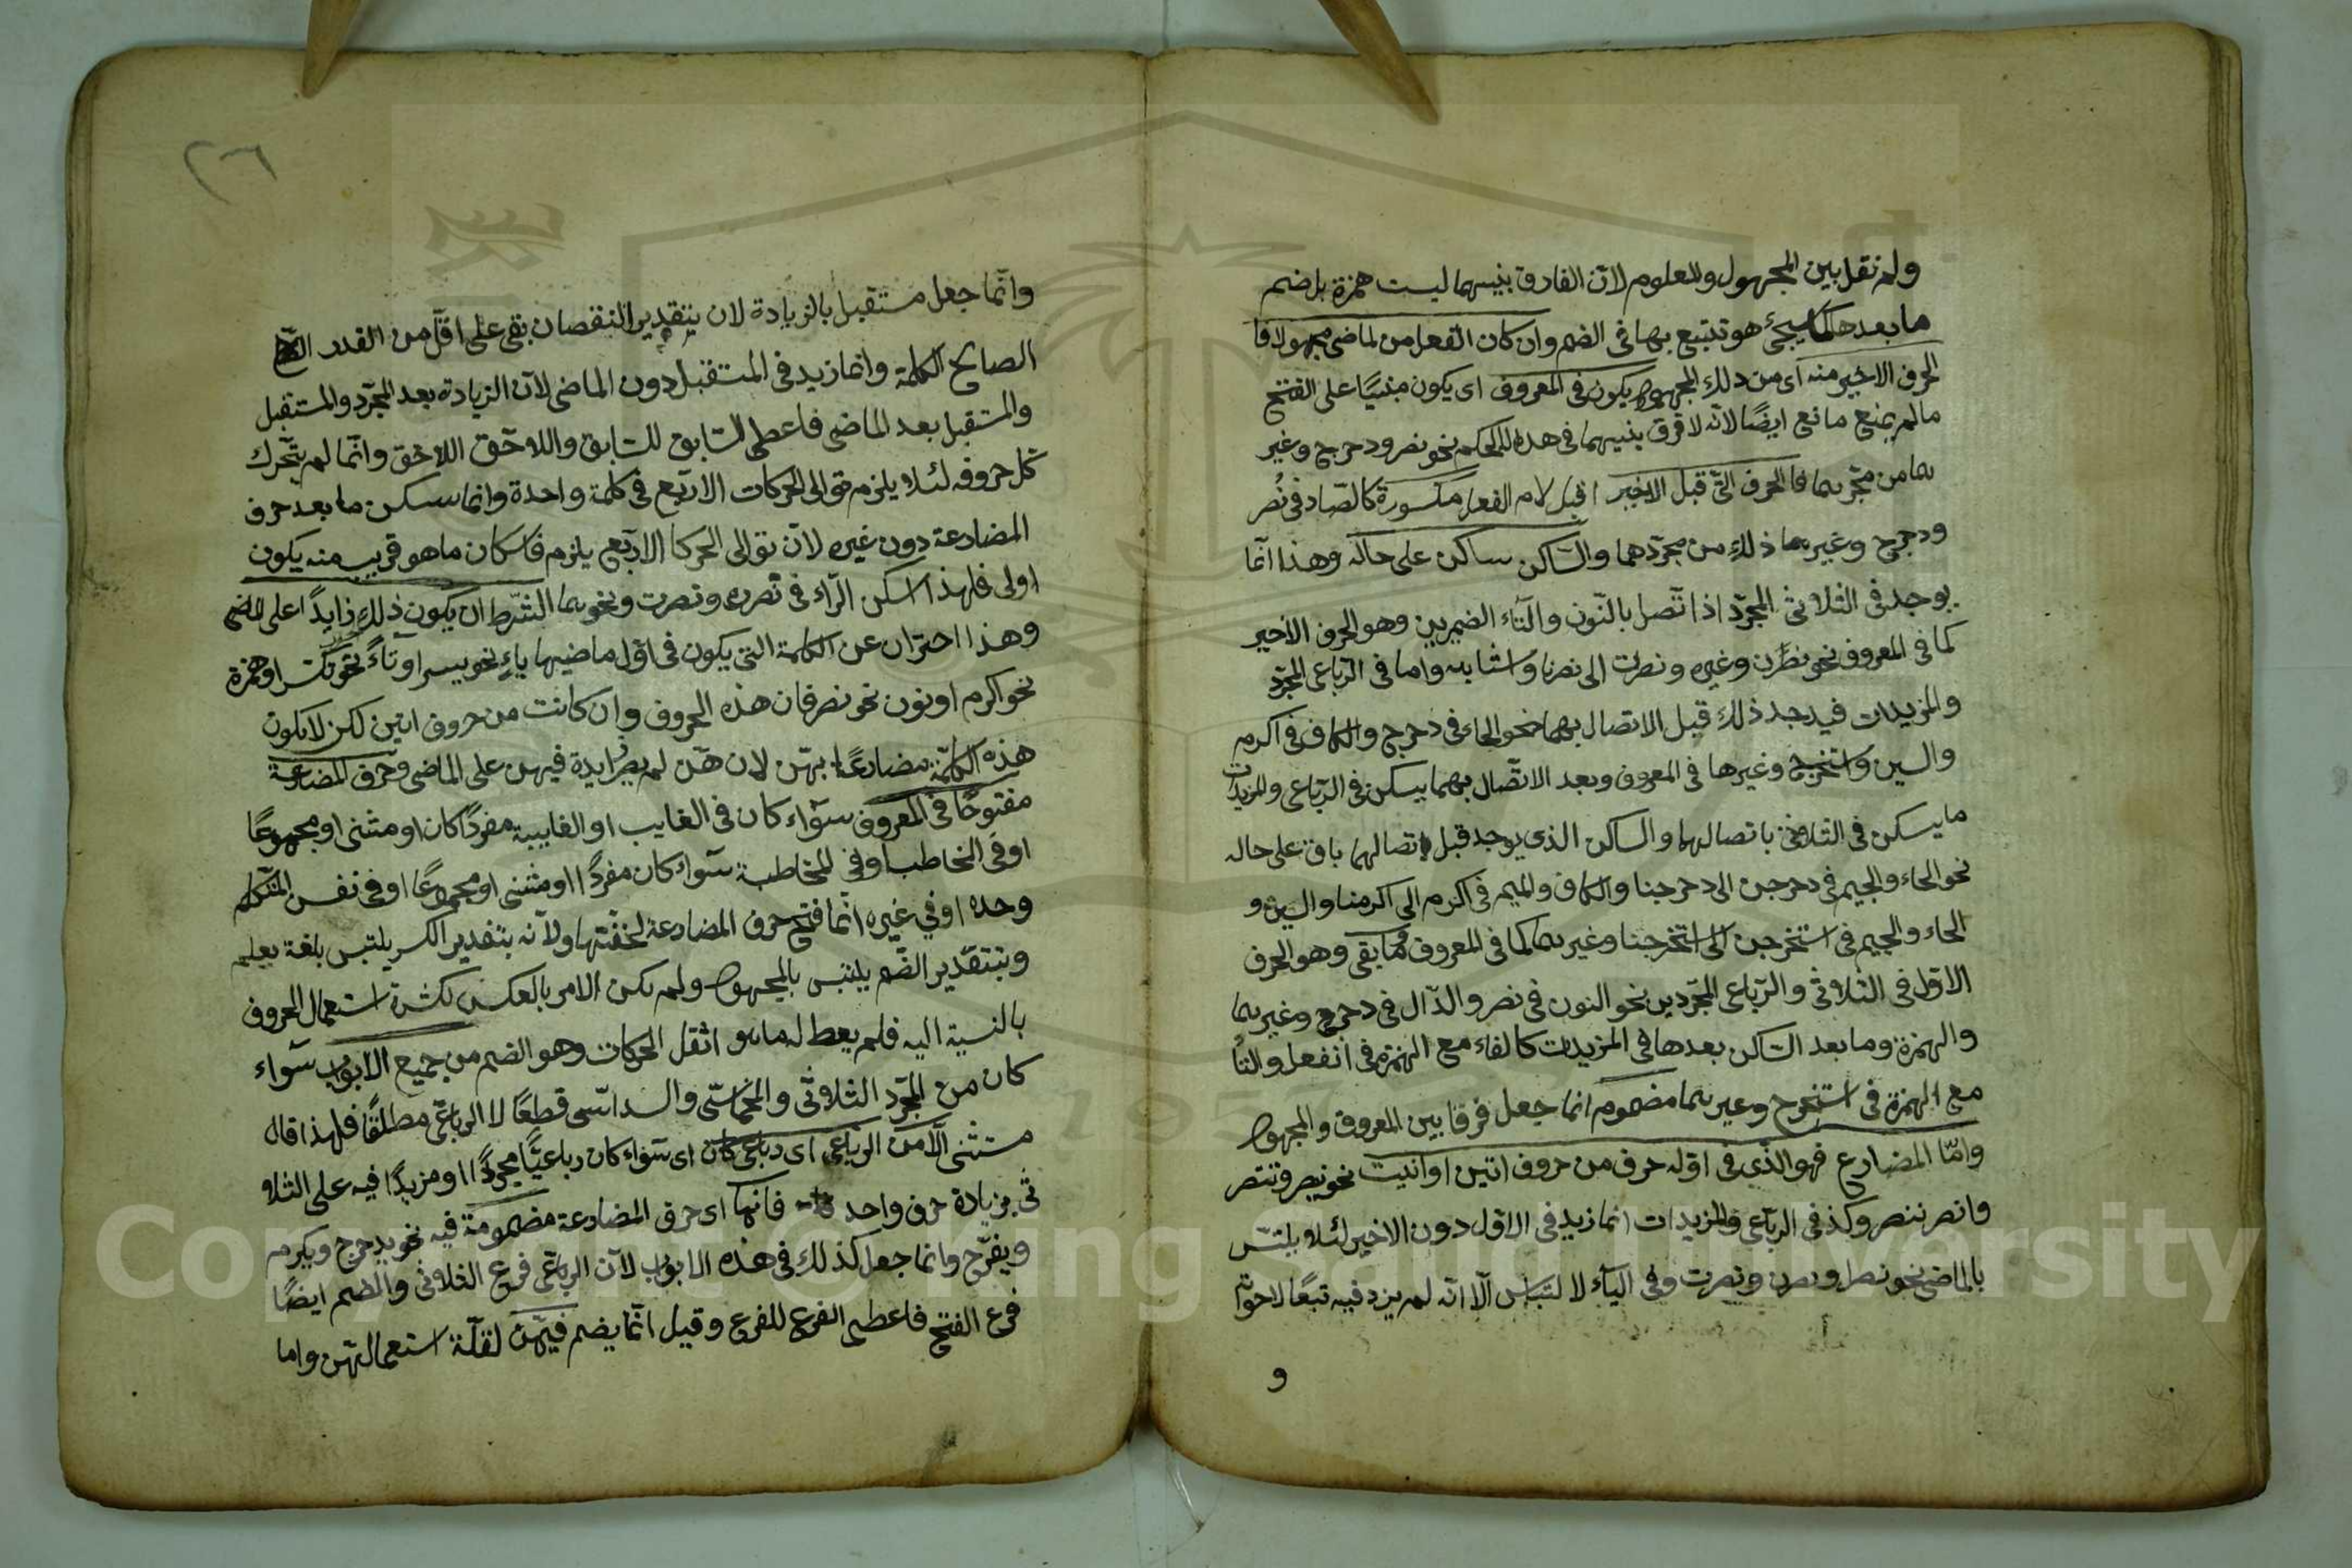 ولم نقل بين المجهول والمعلوم لانّ الفارق بينهما ليست همزة بل ضم
ما بعدها كما سيجئ هو تتبع بها فى الضم وان كان الفعل من لماضى مجهولا فا
الحرف الاخير منه اى من ذلك المجهول يكون فى المعروف اى يكون مبنيّا على الفتح
مالم يمنع مانع ايضًا لانه لا فرق بينهما فى هذا الحكم نحو نصر ودحرج وغير
هما من مجرّدهما فا الحرف التى قبل الاخير اقبل لام الفعل مكسورة كالصّاد فى نُصر
ودحرج وغيرهما ذلك من مجرّدهما والسّاكن ساكن على حاله وهذا انّما
يوجد فى الثلاثى المجرّد اذا تّصل بالنّون والتّاء الضميرين وهو الحرف الاخير
كما فى المعروف نحو نصرن وغيره ونصرت الى نصرنا واشابه واما فى الرّباعى المجرّد
والمزيدات فيوجد ذلك قبل الاتصال بهما نحو الحاء فى دحرج والكاف فى اكرم
والسين واستخرج وغيرها فى المعروف وبعد الاتّصال بهما يسكن فى الرّباعى والمزيدات
ما يسكن فى الثلاثى باتصالهما والساكن الذى يوجد قبل اتصالهما باق على حاله
نحو الحاء والجيم فى دحرجن الى دحرجنا والكاف والميم فى اكرم الى اكرمنا والسين و
الخاء والجيم فى استخرجن الى استخرجنا وغيرهما كما فى المعروف وما بقى وهو الحرف
الاوّل فى الثلاثى والرّباعى المجرّدين نحو النون فى نصر والدّال فى دحرج وغيرهما
والهمزة وما بعد السّاكن بعدها فى المزيدات كالفاء مع الهمزة فى انفعل والتّا
مع الهمزة فى استخرج وغيرهما مضموم انما جعل فرقا بين المعروف والمجهول
وامّا المضارع فهو الذّى فى اوّله حرف من حروف اتين او انيت نحو ينصر وتنصر
وانصر ننصر وكذ فى الربّاعى والمزيدات انما زيد فى الاوّل دون الاخير لئلا يلتبس
بالماضى نحو نصرا ونصرن ونصرت وفى اليآء لا لتباس الّا انّه لم يزد فيه تبعًا لاخوا
و
٢٦
وانّما جعل مستقبل بالزيادة لان بتقدير النقصان بقى على اقلّ من القدر
الصالح الكلمة وانما زيد فى المستقبل دون الماضى لانّ الزيادة بعد المجرّد والمستقبل
والمستقبل بعد الماضى فاعطى السّابق للسّابق واللاحق اللاحق وانّما لم يتّحرك
كل حروفه لئلا يلزم توالى الحركات الاربع فى كلمة واحدة وانما سكن ما بعد حرف
المضادعة دون غيره لانّ توالى الحركا الاربع يلزم فاسكان ما هو قريب منه يكون
اولى فلهذا اسكن الرّاء فى نصرن ونصرت ونحوهما الشّرط ان يكون ذلك زايدًا على الماضى
وهذا احتزان عن الكلمة التى يكون فى اوّل ماضيها ياءٍ نحو يسر او تآءً نحو تكسر او همزة
نحو اكرم او نون نحو نصر فان هذه الحروف وان كانت من حروف اتين لكن لا يكون
هذه الكلمة مضادعًا بهنّ لان هنّ لم يصر زايدة فيهن على الماضى وحرف المضادعة
مفتوحًا فى المعروف سوآء كان فى الغايب او الغايبة مفردًا كان او مثنى او مجموعًا
او فى المخاطب او فى المخاطبة سوآء كان مفردًا او مثنى او مجموعًا او فى نفس المتكلم
وحده او فى غيره انّما فتح حرف المضادعة لخفّتها ولانّه بتقدير الكسر يلتبس بلغة يعلم
وبتقدير الضّم يلتبس بالمجهول ولم يكن الامر بالعكس لكثرة استعمال المعروف
بالنسبة اليه فلم يعط له ما هو اثقل الحركات وهو الضم من جميع الابواب سوآء
كان من المجرّد الثلاثى والخماسّى والسداسّى قطعًا لا الرباعّى مطلقًا فلهذا قال
مستثنى الّا من الرباعى اى رباعى كان اى سوآء كان رباعيّا مجردًا او مزيدًا فيه على الثلا
ثى بزيادة حرف واحد فانها اى حرف المضادعة مضمومة فيه نحو يدحرج ويكرم
ويفرّح وانما جعل كذلك فى هذه الابواب لانّ الرباعّى فرع الثلاثى والضم ايضًا
فرع الفتح فاعطى الفرع للفرع وقيل انّما يضم فيهنّ لقلّة استعمالهنّ واما
Copyright © King Saud University
1957